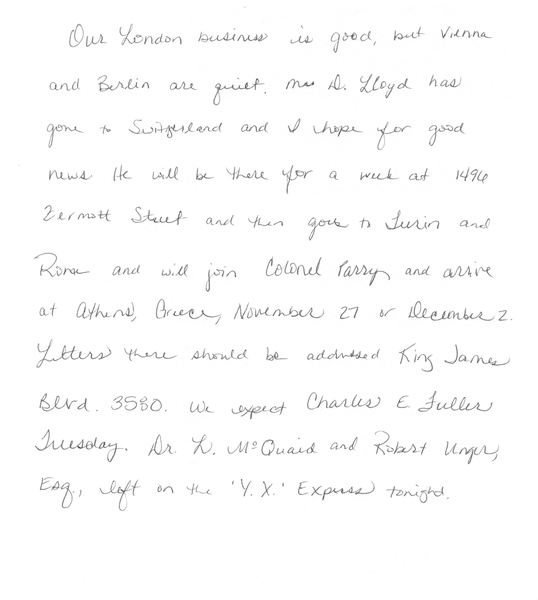 Our London business is good, but Vienna
and Berlin are quiet. Mr. D. Lloyd has
gone to Switzerland and I hope for good
news He will be there for a week at 1496
Zermott Street and then goes to Turin and
Rome and will join Colonel Parry and arrive
at Athens, Greece, November 27 or December 2.
Letters there should be addressed King James
Blvd. 3580. We expect Charles E. Fuller
Tuesday. Dr. L. McQuaid and Robert Unger,
Esq., left on the 'Y. X.' Express tonight.